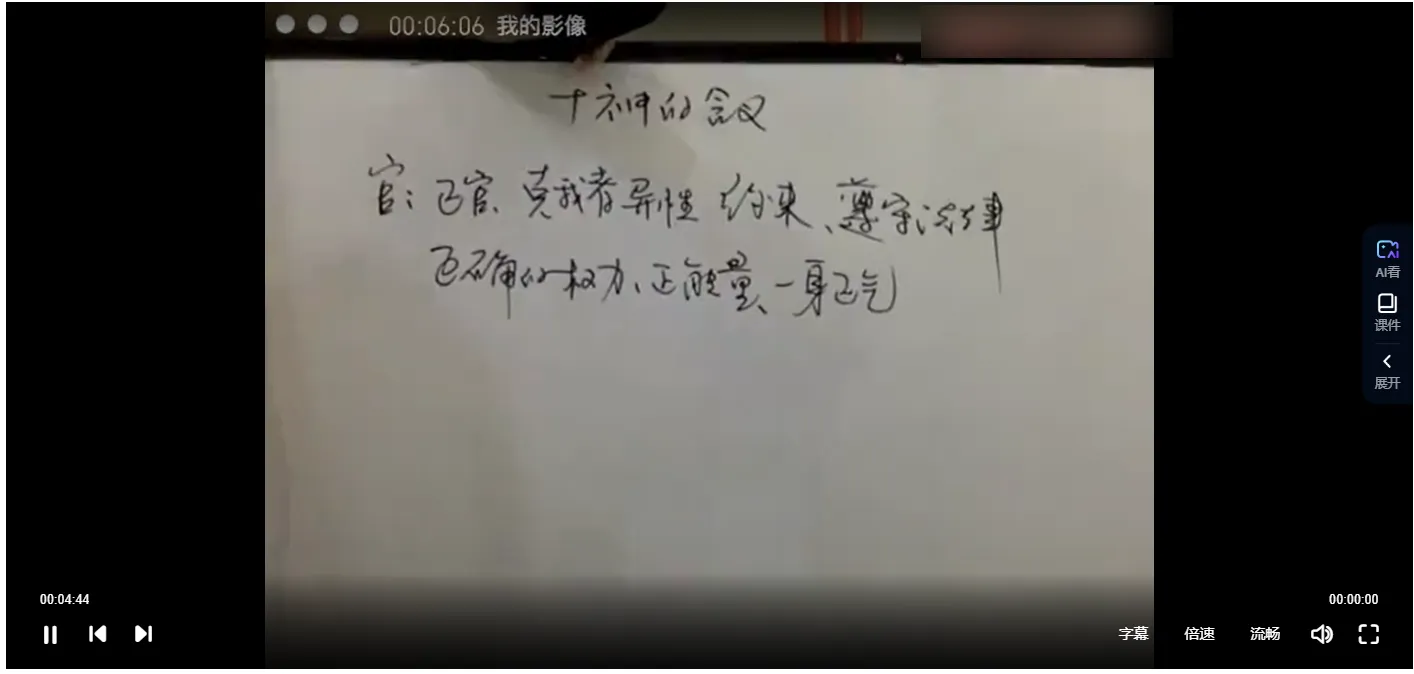 00:06:06 我的影像
十神的含义
官：正官、克我者异性 约束、遵守法律
正确的权力、正能量、一身正气
AI看
课件
展开
00:04:44
00:00:00
字幕
倍速
流畅